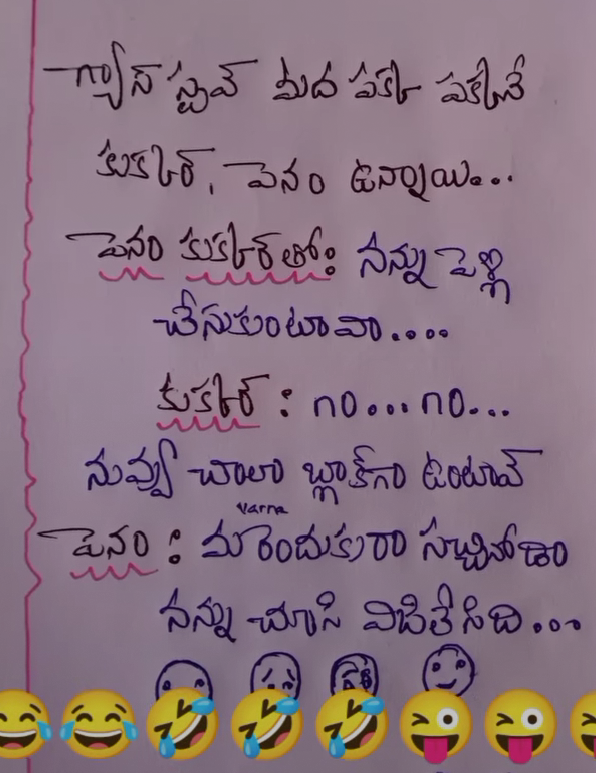 గ్యాస్ స్టవ్ మీద పక్క పక్కనే
కుకర్, పెనం ఉన్నాయి...
పెనం కుకర్‌తో: నన్ను పెళ్లి
చేసుకుంటావా....
కుకర్ : no...no...
నువ్వు చాలా బ్లాక్‌గా ఉంటావ్
Varna
పెనం : మరెందుకురా సచ్చినోడా
నన్ను చూసి విజిలేసిది...